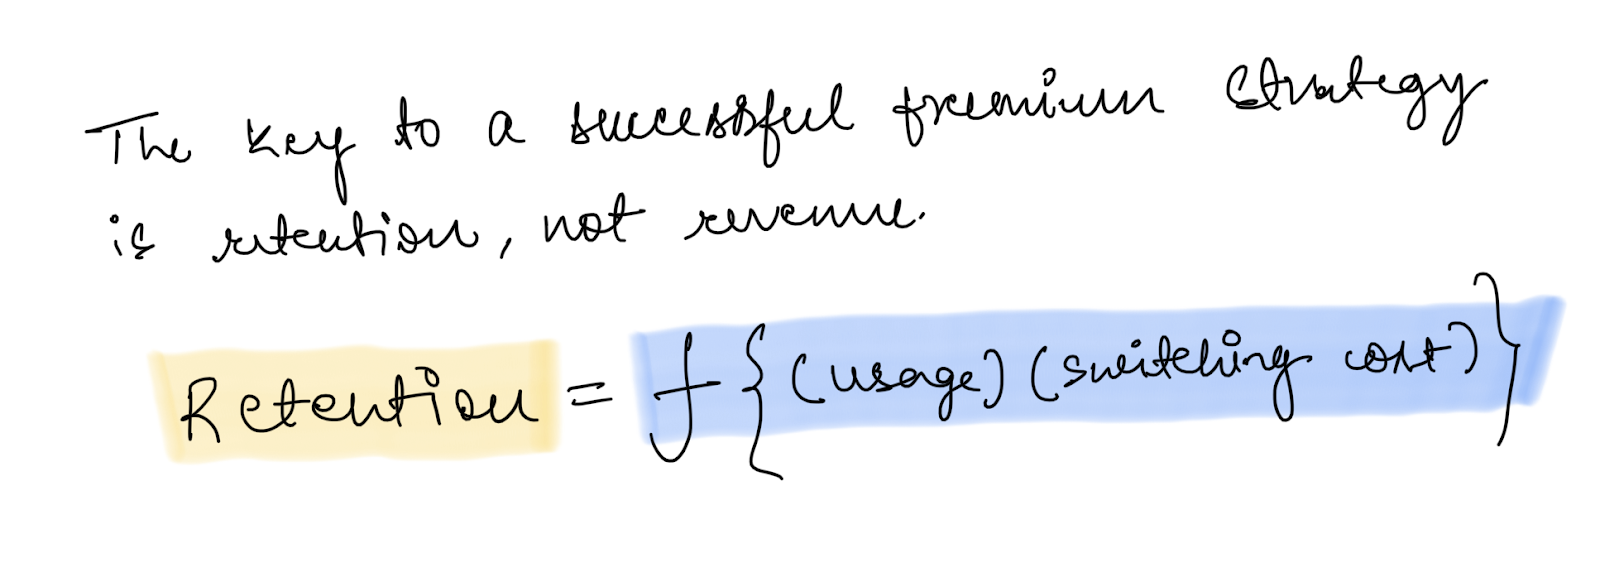 The key to a successful freemium strategy
is retention, not revenue.
Retention = f{(usage)(switching cost)}